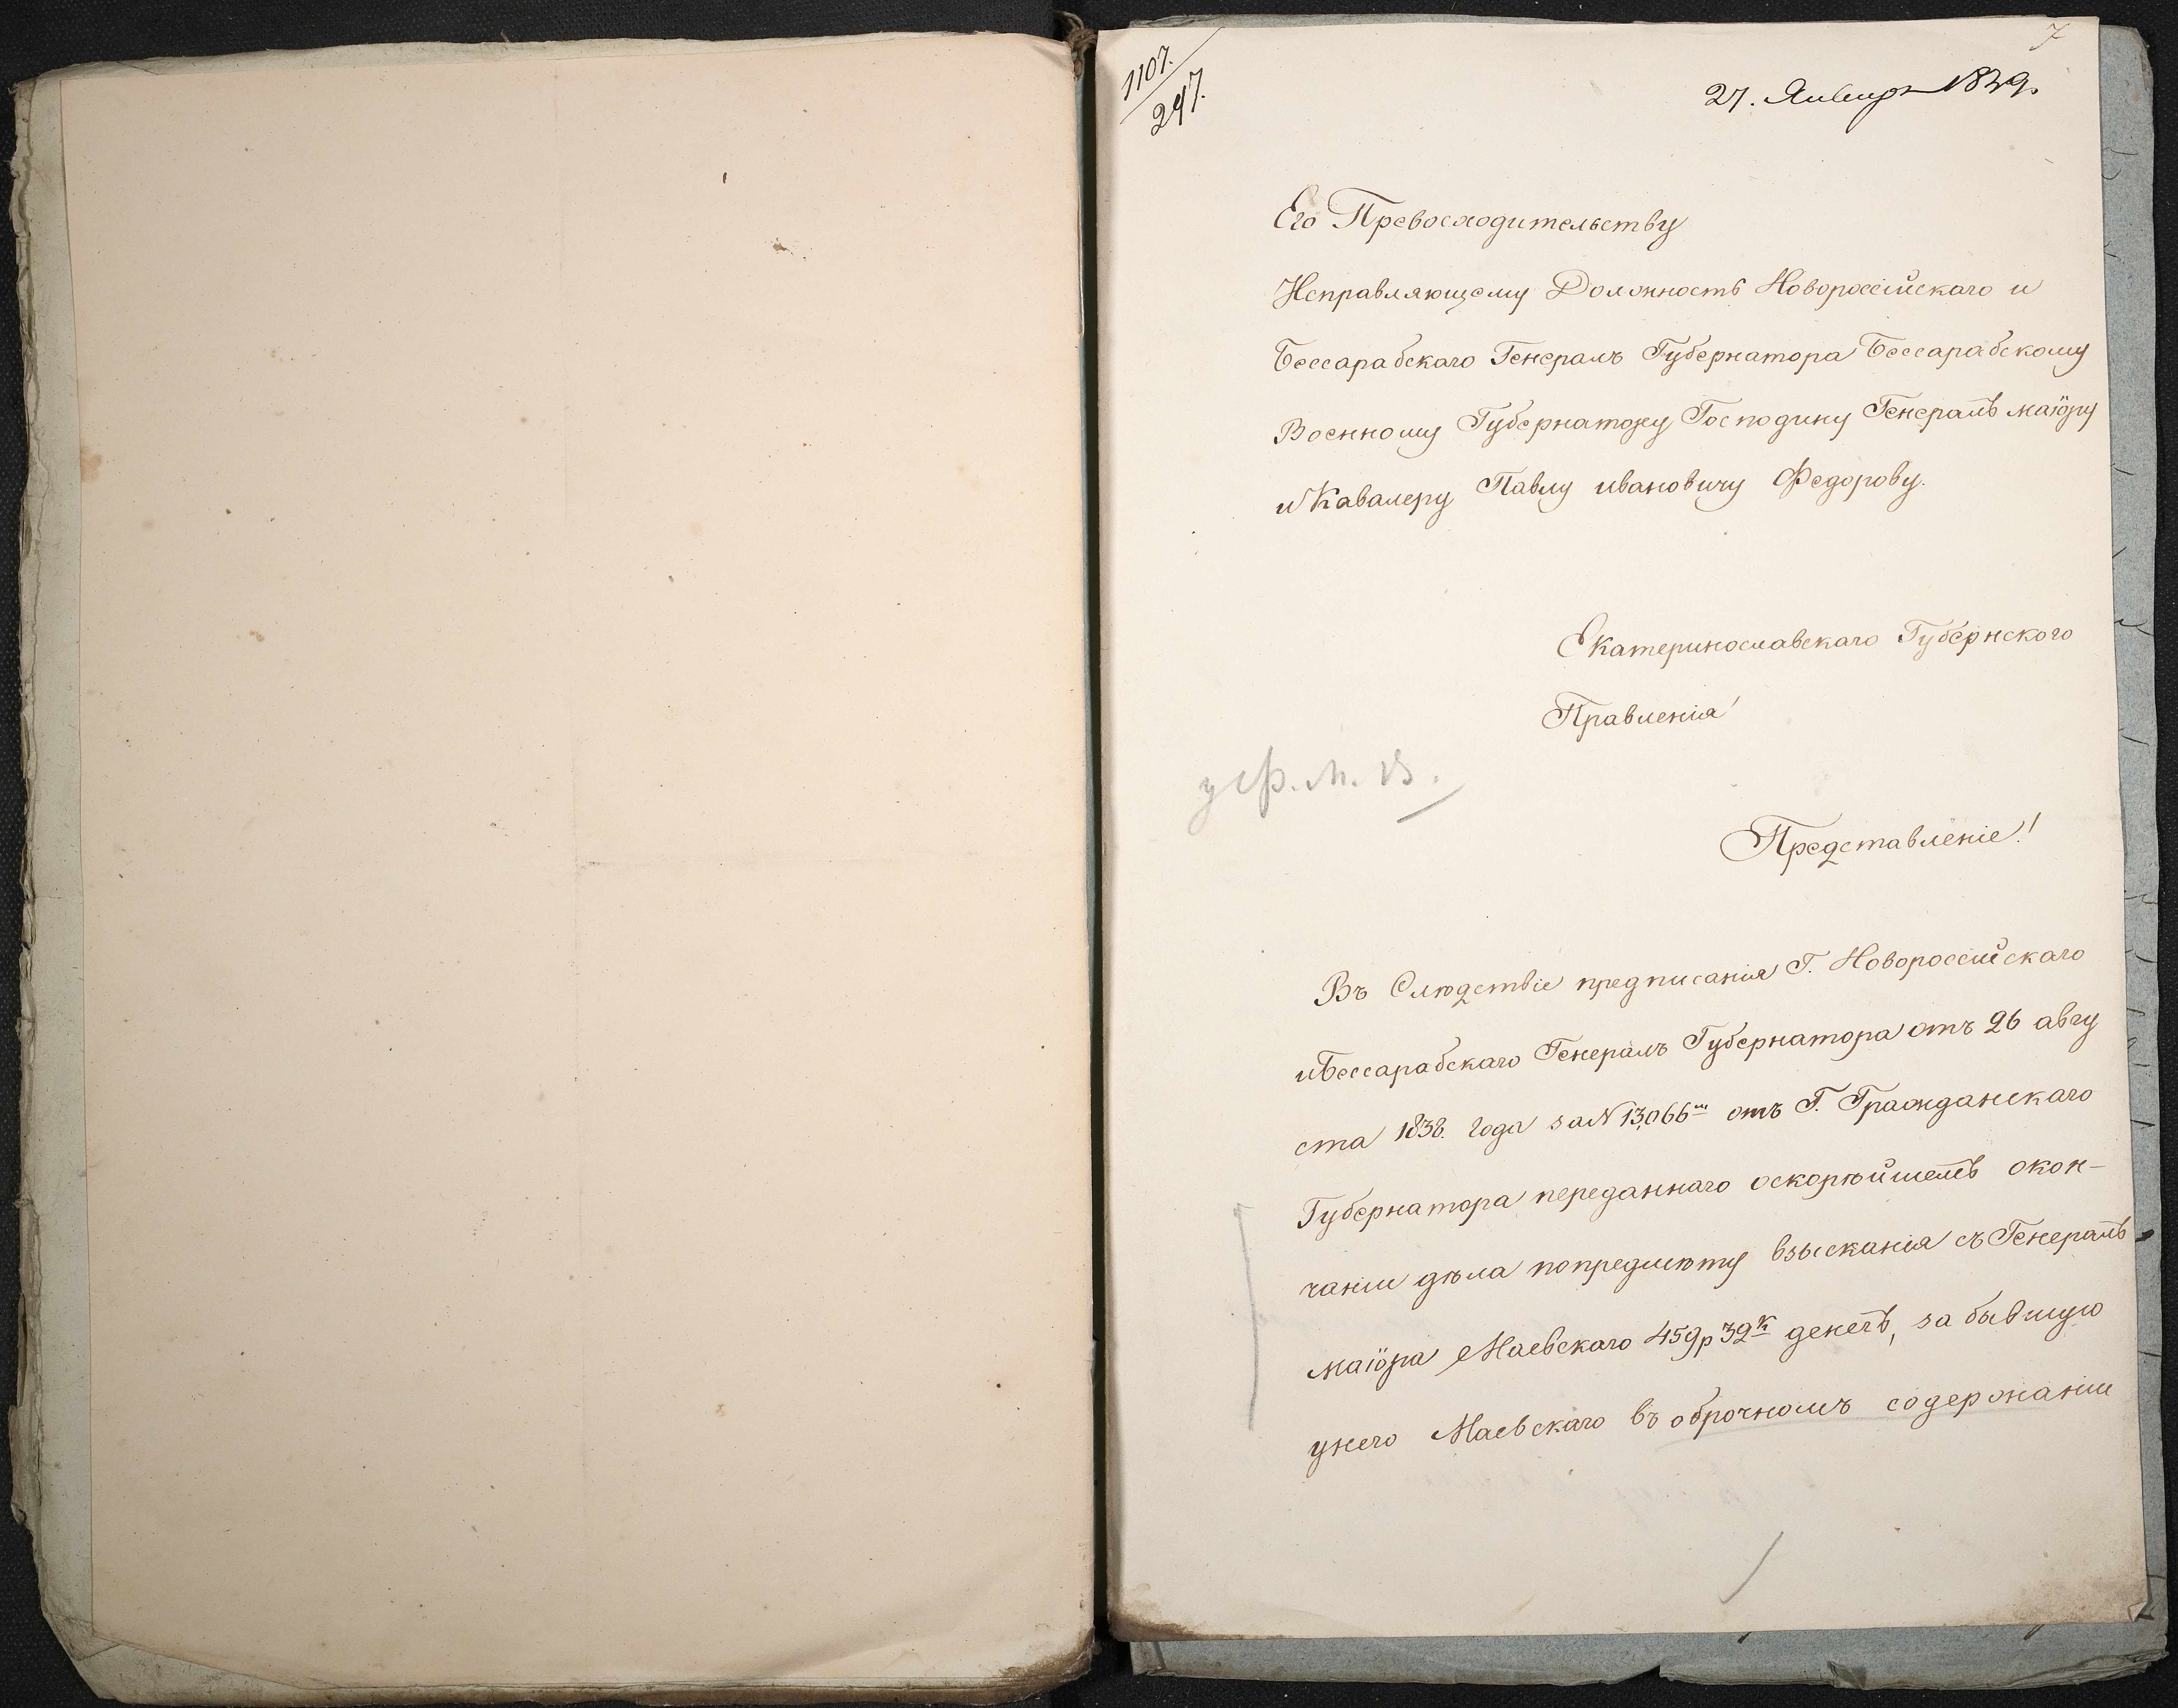 7
1107.
247.
27. Января 1839.
Его Превосходительству
Исправляющему Должность Новороссійскаго и
Бессарабскаго Генералъ Губернатора Бессарабскому
Военному Губернатору Господину Генералъ маіору
и Кавалеру Павлу ивановичу Федорову.
Екатеринославскаго Губернского
Правленія
Представленіе!
Въ Слѣдствіе предписанія Г. Новороссійскаго
и Бессарабскаго Генералъ Губернатора отъ 26 авгу
ста 1838. года за N 13,066 отъ Г. Гражданскаго
Губернатора переданнаго оскорѣйшемъ окон-
чаніи дѣла попредмѣту взысканія съ Генералъ
маіора Маевскаго 459р 32к денегъ, за бывшую
унего Маевскаго въ оброчномъ содержаніи